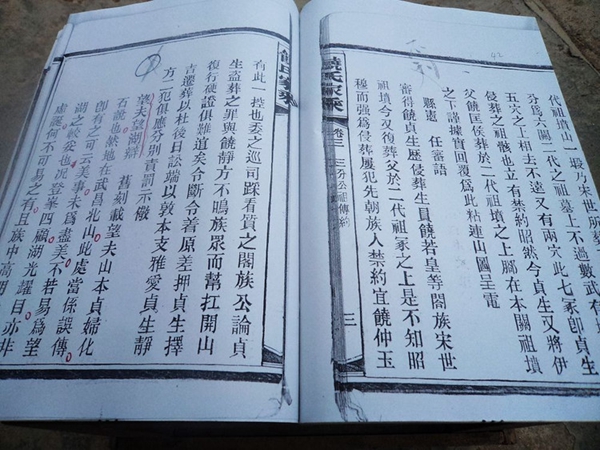 代祖墳山一塅乃宋世所葬
分爲六關二代之祖墓上不過數武有
五六之上相去不遠又有兩穴此七冢卽貞生
侵葬之祖骸也立有禁約昭然今貞生又將伊
父饒匡侯葬於二代祖墳之上厲在本關祖墳
之下謹據實回覆爲此粘連山圖呈電
縣憲 任審語
審得饒貞生歷侵葬生員饒若皇等閤族宋世
祖墳今又復葬父於二代祖冢之上是不知昭
穆而强爲侵葬屢犯先朝族人禁約宜饒仲玉
饒氏家乘 卷三 三分公祖傳約 三
饒氏家乘
有此一控也委之巡司踩看質之閤族公論貞
生盜葬之罪與饒靜方不鳴族眾而幫扛開山
復行硬證俱難逭矣令斷令着原差押貞生擇
吉遷葬以杜後日訟端以敦本支雅愛貞生靜
方二犯俱應分別責罰示儆
望夫望湖辯
舊刻載望夫山本貞婦化
石說也然地在武昌北山此處當係誤傳
卽有之可云美事未爲盡美不若易爲望
湖之較妥也况登峯四顧湖光耀目亦非
虛誕何不可易之有且族中高